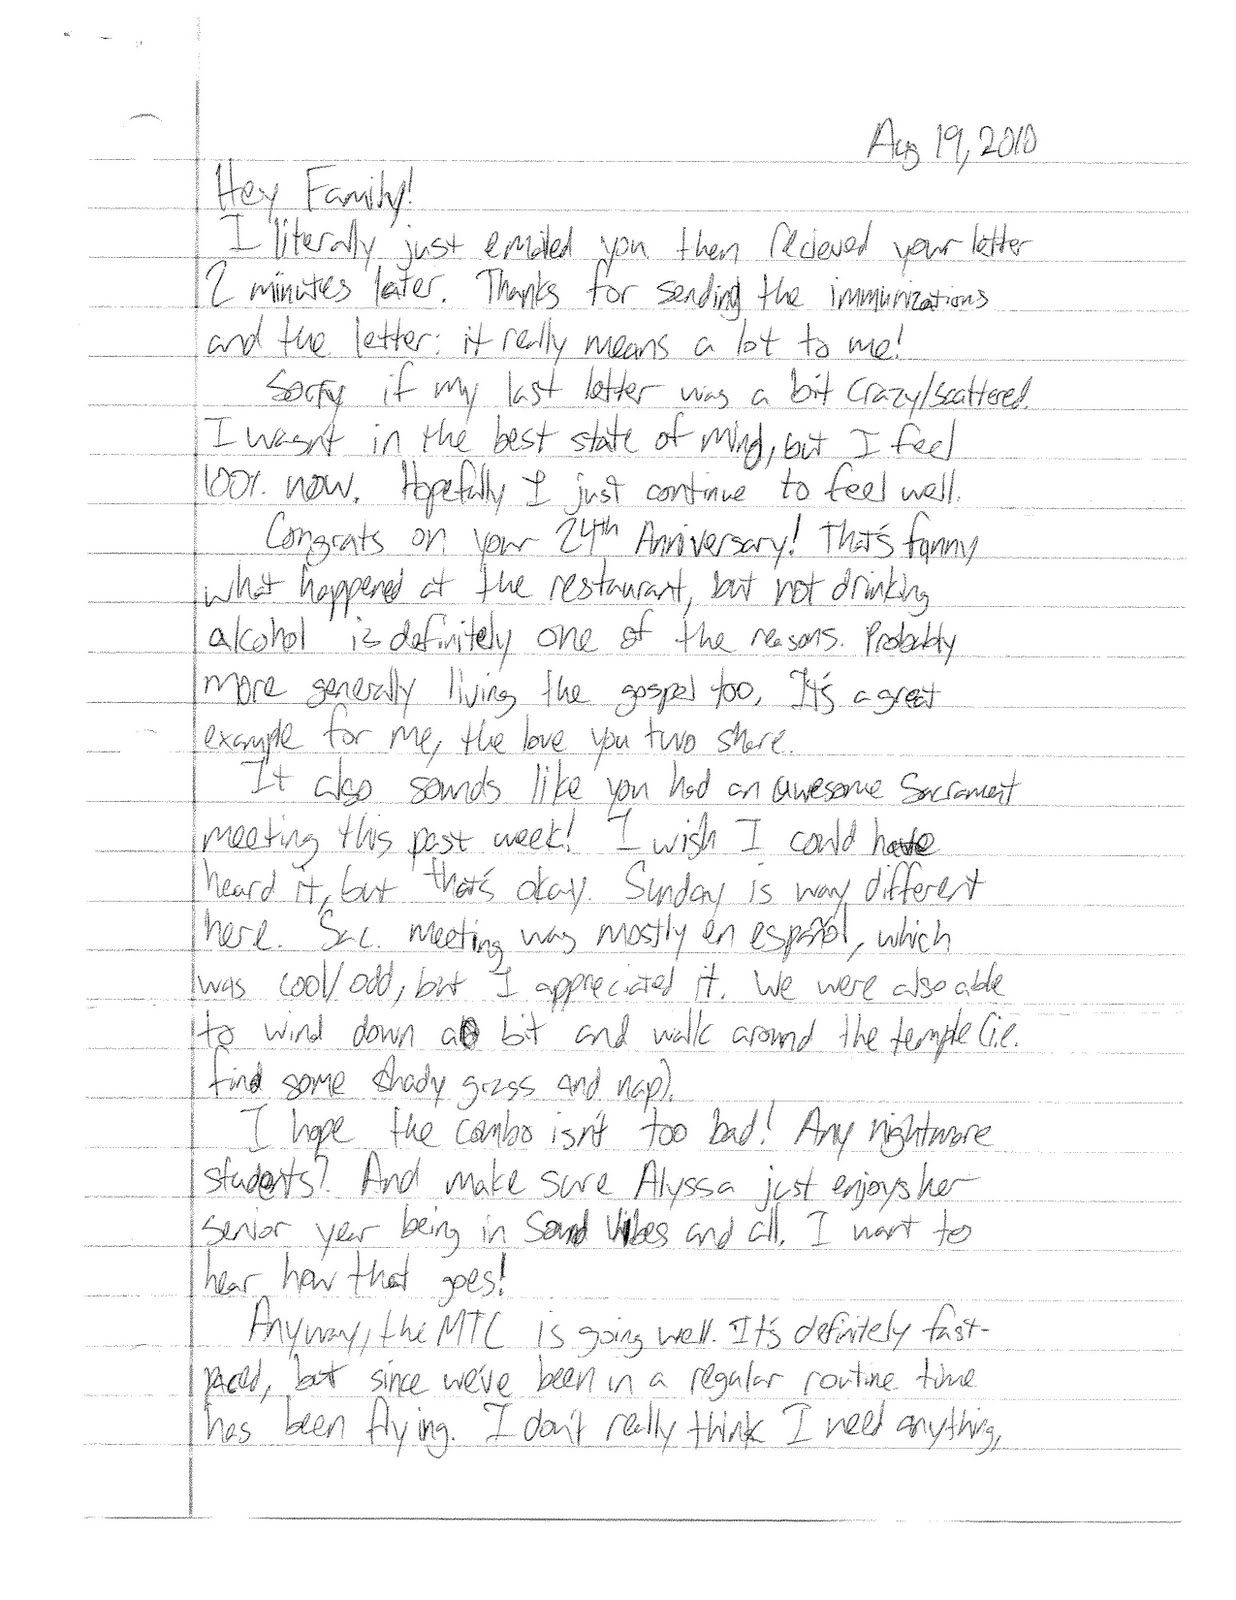 Aug 19, 2010
Hey Family!
I literally just emailed you then recieved your letter
2 minutes later. Thanks for sending the immunizations
and the letter: it really means a lot to me!
Sorry if my last letter was a bit crazy/scattered.
I wasn't in the best state of mind, but I feel
100% now. Hopefully I just continue to feel well.
Congrats on your 24th Anniversary! That's funny
what happened at the restaurant, but not drinking
alcohol is definitely one of the reasons. Probably
more generally living the gospel too. It's a great
example for me, the love you two share.
It also sounds like you had an awesome Sacrament
meeting this past week! I wish I could have
heard it, but that's okay. Sunday is way different
here. Sac. meeting was mostly en español, which
was cool/odd, but I appreciated it. We were also able
to wind down a bit and walk around the temple (i.e.
find some shady grass and nap).
I hope the combo isn't too bad! Any nightmare
students? And make sure Alyssa just enjoys her
senior year being in Sound Vibes and all. I want to
hear how that goes!
Anyway, the MTC is going well. It's definitely fast-
paced, but since we've been in a regular routine time
has been flying. I don't really think I need anything,